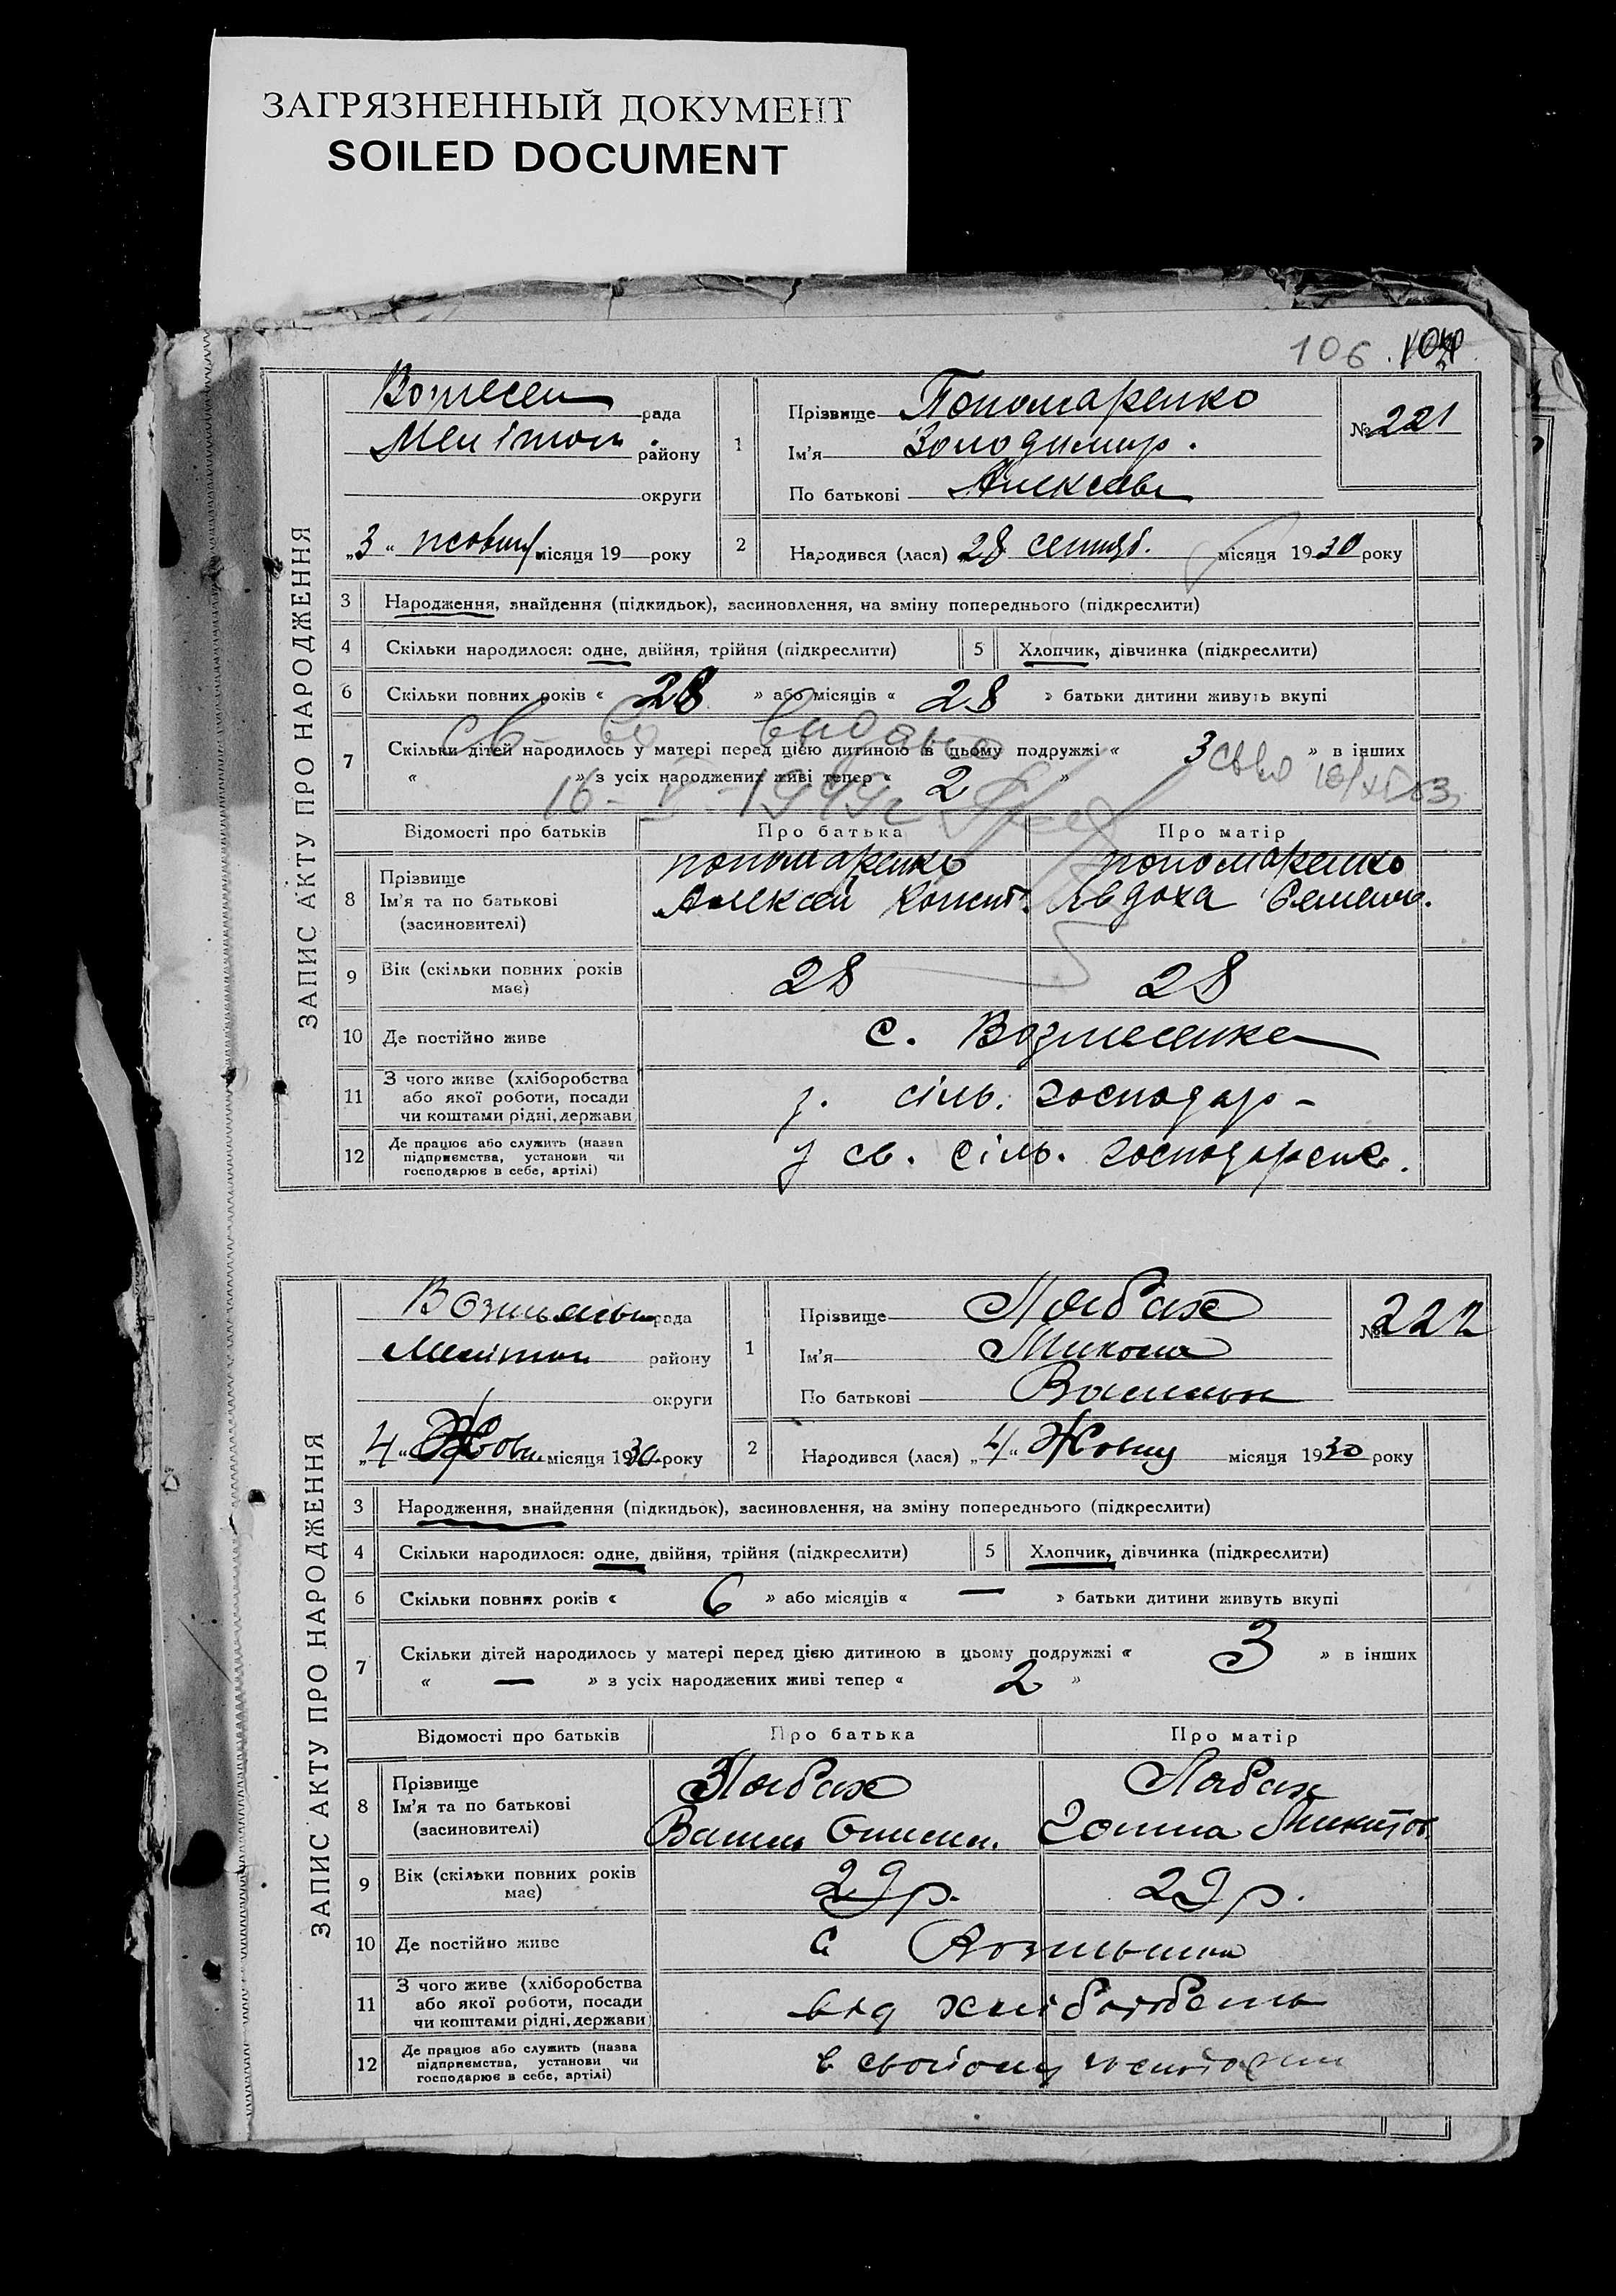 ЗАГРЯЗНЕННЫЙ ДОКУМЕНТ
SOILED DOCUMENT
106
ЗАПИС АКТУ ПРО НАРОДЖЕННЯ
Вознесен рада
Мелітоп. району
округи
„3“ жовтн місяця 19 року
1 Прізвище Пономаренко
Ім'я Володимир.
По батькові Алексеев
№ 221
2 Народився (лася) „28 сентяб. місяця 1930 року
3 Народження, знайдення (підкидьок), засиновлення, на зміну попереднього (підкреслити)
4 Скільки народилося: одне, двійня, трійня (підкреслити) 5 Хлопчик, дівчинка (підкреслити)
6 Скільки повних років « 28 » або місяців « 28 » батьки дитини живуть вкупі
7 Скільки дітей народилось у матері перед цією дитиною в цьому подружжі « 3 » в інших
« » з усіх народжених живі тепер « 2 »
видано
Відомості про батьків Про батька Про матір
8 Прізвище
Ім'я та по батькові
(засиновителі)
пономаренко пономаренко
Алексей Конст. Явдоха Семенов.
9 Вік (скільки повних років
має)
28 28
10 Де постійно живе с. Вознесенке
11 З чого живе (хліборобства
або якої роботи, посади
чи коштами рідні, держави
з. сіль. господар-
12 Де працює або служить (назва
підприємства, установи чи
господарює в себе, артілі)
у св. сіль. господарств.
ЗАПИС АКТУ ПРО НАРОДЖЕННЯ
рада
Мелітоп району
округи
„4“ Жовт місяця 1930 року
1 Прізвище Лабах
Ім'я Микола
По батькові Васильов
№ 222
2 Народився (лася) „4“ Жовтня місяця 1930 року
3 Народження, знайдення (підкидьок), засиновлення, на зміну попереднього (підкреслити)
4 Скільки народилося: одне, двійня, трійня (підкреслити) 5 Хлопчик, дівчинка (підкреслити)
6 Скільки повних років « 6 » або місяців « — » батьки дитини живуть вкупі
7 Скільки дітей народилось у матері перед цією дитиною в цьому подружжі « 3 » в інших
« — » з усіх народжених живі тепер « 2 »
Відомості про батьків Про батька Про матір
8 Прізвище
Ім'я та по батькові
(засиновителі)
Лабах Лабах
Василь Микитов.
9 Вік (скільки повних років
має)
29 р. 29 р.
10 Де постійно живе с
11 З чого живе (хліборобства
або якої роботи, посади
чи коштами рідні, держави
від хліборобств
12 Де працює або служить (назва
підприємства, установи чи
господарює в себе, артілі)
в свойому господарстві